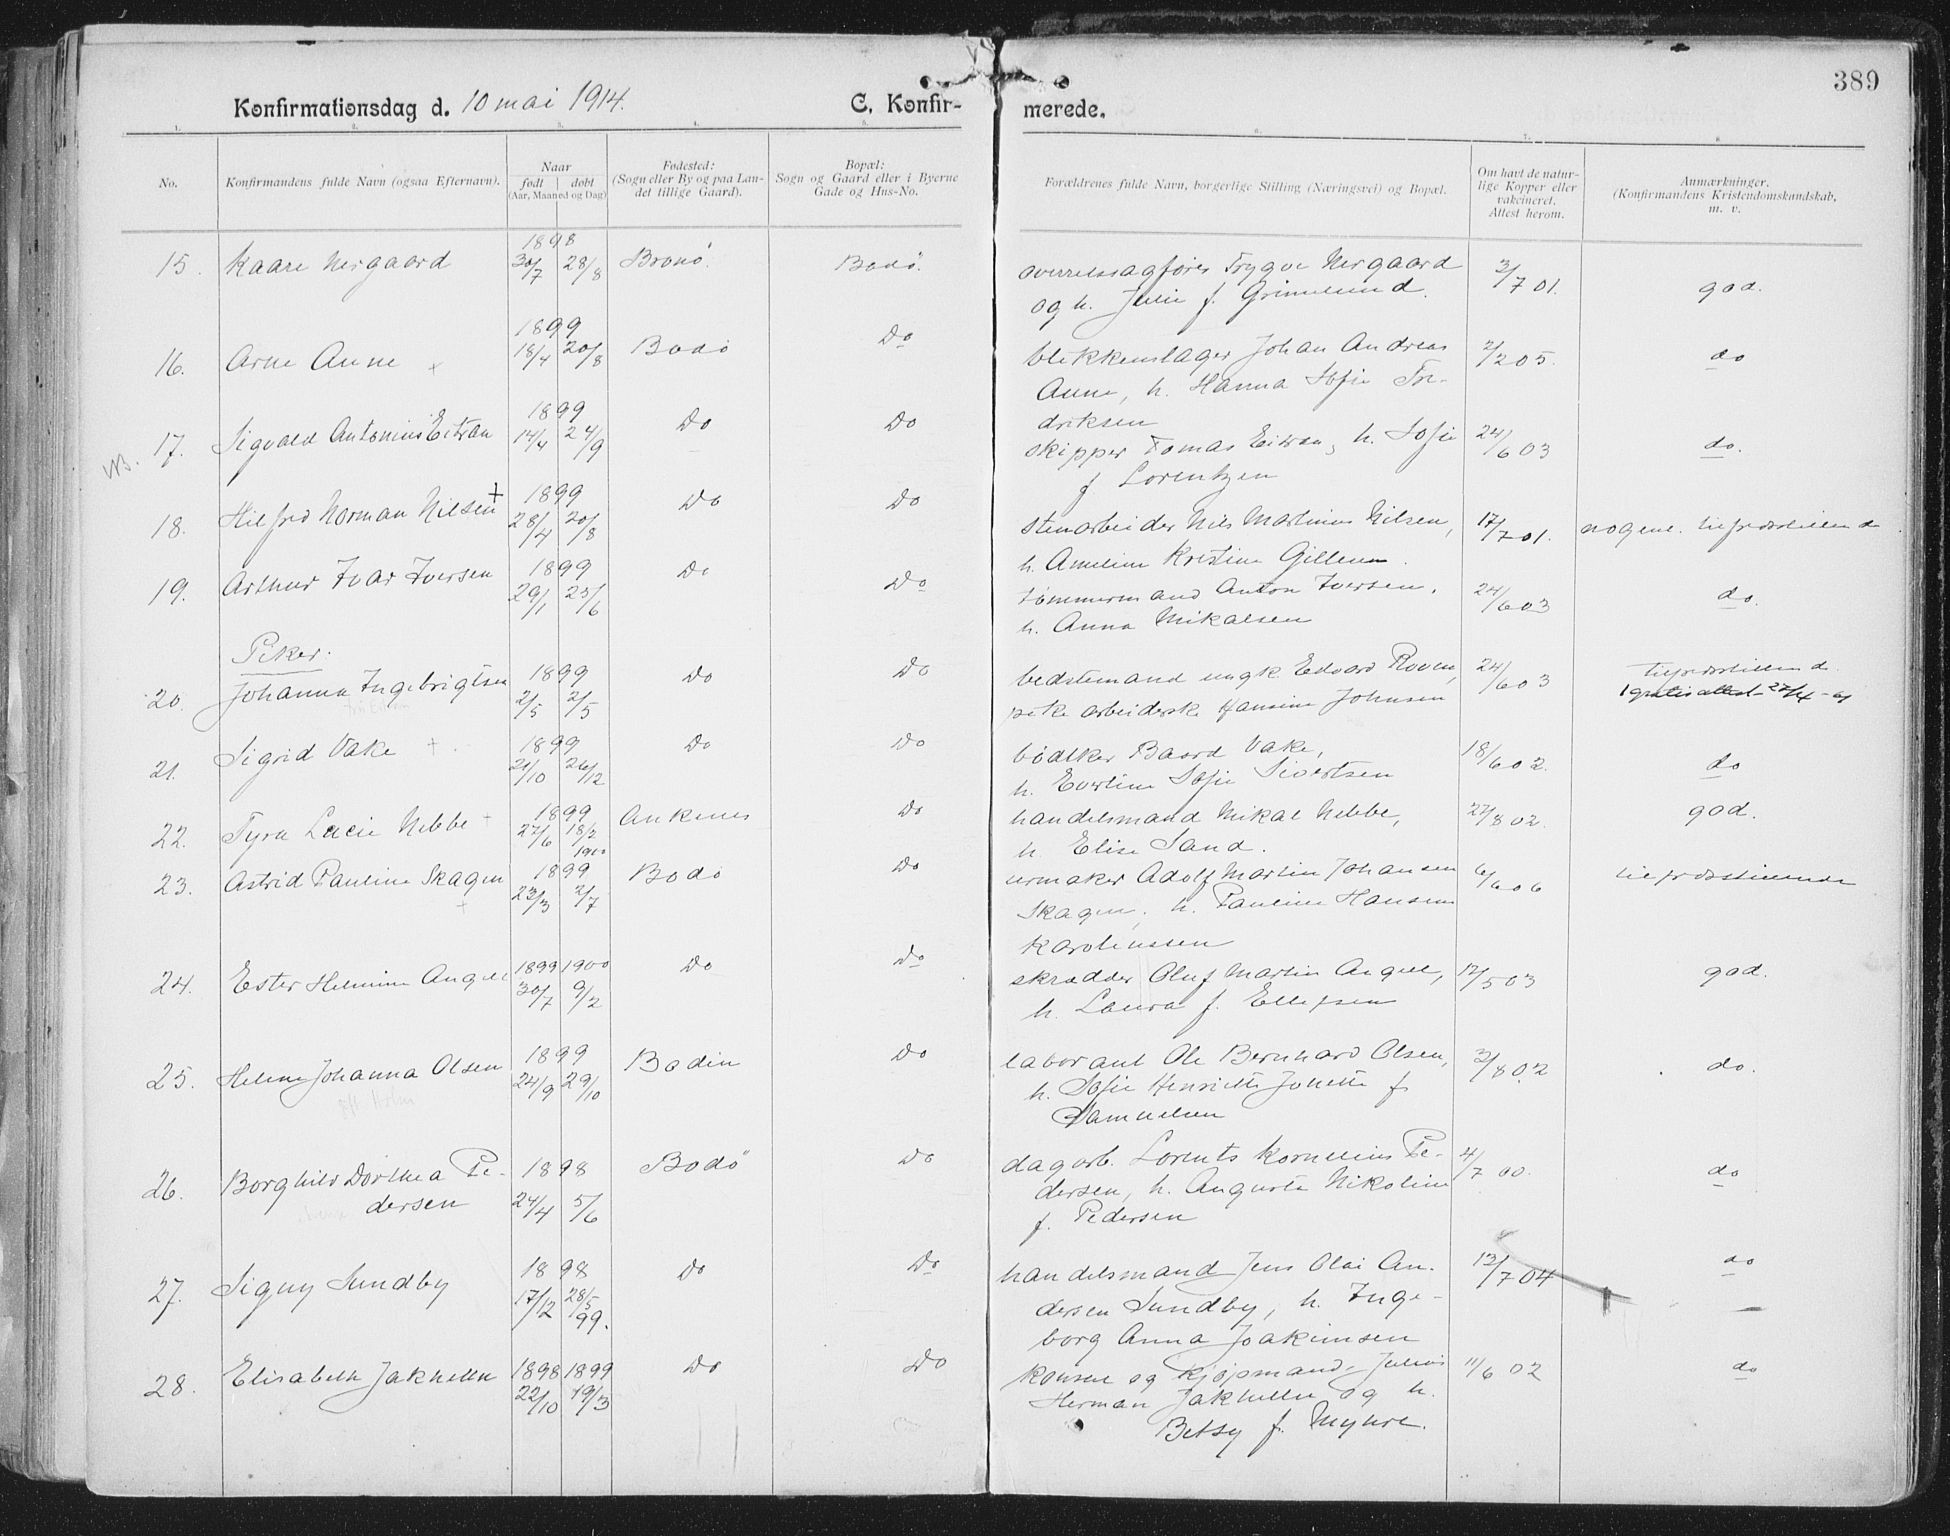 389
Konfirmationsdag d. 10 mai 1914. C. Konfir-merede.
1. 2. 3. 4. 5. 6. 7. 8.
No.
Konfirmandens fulde Navn (ogsaa Efternavn).
Naar
født døbt
(Aar, Maaned og Dag)
Fødested:
(Sogn eller By og paa Lan-
det tillige Gaard).
Bopæl:
Sogn og Gaard eller i Byerne
Gade og Hus-No.
Forældrenes fulde Navn, borgerlige Stilling (Næringsvei) og Bopæl.
Om havt de natur-
lige Kopper eller
vakcineret.
Attest herom.
Anmærkninger.
(Konfirmandens Kristendomskundskab,
m. v.
1898
15. Kaare Nergaard 30/7 28/8 Brønø. Bodø. overretssagfører Trygve Nergaard 3/7 01. god.
og h. Julie f. Grimelund.
1899
16. Arne Aune 18/4 20/8 Bodø Do blikkenslager Johan Andreas 2/2 05. do
Aune, h. Hanna Sofie Fre-
driksen
1899
NB. 17. Sigvald Antonius Eitran 14/4 24/9 Do Do skipper Tomas Eitran, h. Sofie 24/6 03 do.
f. Lorentzen
1899
18. Hilfred Norman Nilsen + 28/4 20/8 Do Do stenarbeider Nils Martinus Nilsen, 17/7 01. nogenl. tilfredsstillend
h. Ameline Kristine
1899
19. Arthur Ivar Iversen 29/1 25/6 Do Do tømmermand Anton Iversen, 24/6 03 do.
h. Anna Mikalsen
Piker:
1899
20. Johanna Ingebrigtsen 2/5 2/5 Do Do bedstemand ungk. Edvard 24/6 03 tilfredsstillend.
pike arbeiderske Hansine Johnsen
1899
21. Sigrid Vake + 21/10 26/12 Do Do bødker Baard Vake, 18/6 02. do
h. Evertine Sofie Sivertsen
1899
22. Tyra Lucie Nebbe + 27/6 18/2 1900 Ankenes Do handelsmand Mikal Nebbe, 27/8 02. god.
h. Elise Sand.
1899
23. Astrid Pauline Skagen 23/3 2/7 Bodø Do urmaker Adolf Martin Johansen 6/6 06 tilfredsstillende
Skagen, h. Pauline Hansine
Karolinssen
1899 1900
24. Ester Helmine Angell 30/7 9/2 Do Do skrædder Oluf Martin Angell, 12/5 03 god.
h. Laura f. Ellefsen
1899
25. Helene Johanna Olsen 24/9 29/10 Bodin Do laborant Ole Bernhard Olsen, 3/8 02 do.
gift Holm
h. Sofie Henriette Jonette f.
Samuelsen
26. Borghild Dorthea Pe- 1898 Bodø Do dagarb. Lorents Kornelius Pe- 4/7 00. do
dersen 24/4 5/6 dersen, h. Augusta Nikoline
f. Pedersen
1898
27. Signy Sundby 17/12 28/5 99. Do Do handelsmand Jens Olai An- 13/7 04 do
dersen Sundby, h. Inge-
borg Anna Joakimsen
28. Elisabeth Jakhelln 1898 1899 Do Do konsul og kjøpmand Julius 11/6 02 do
22/10 19/3 Herman Jakhelln og h.
Betsy f. Myhre.